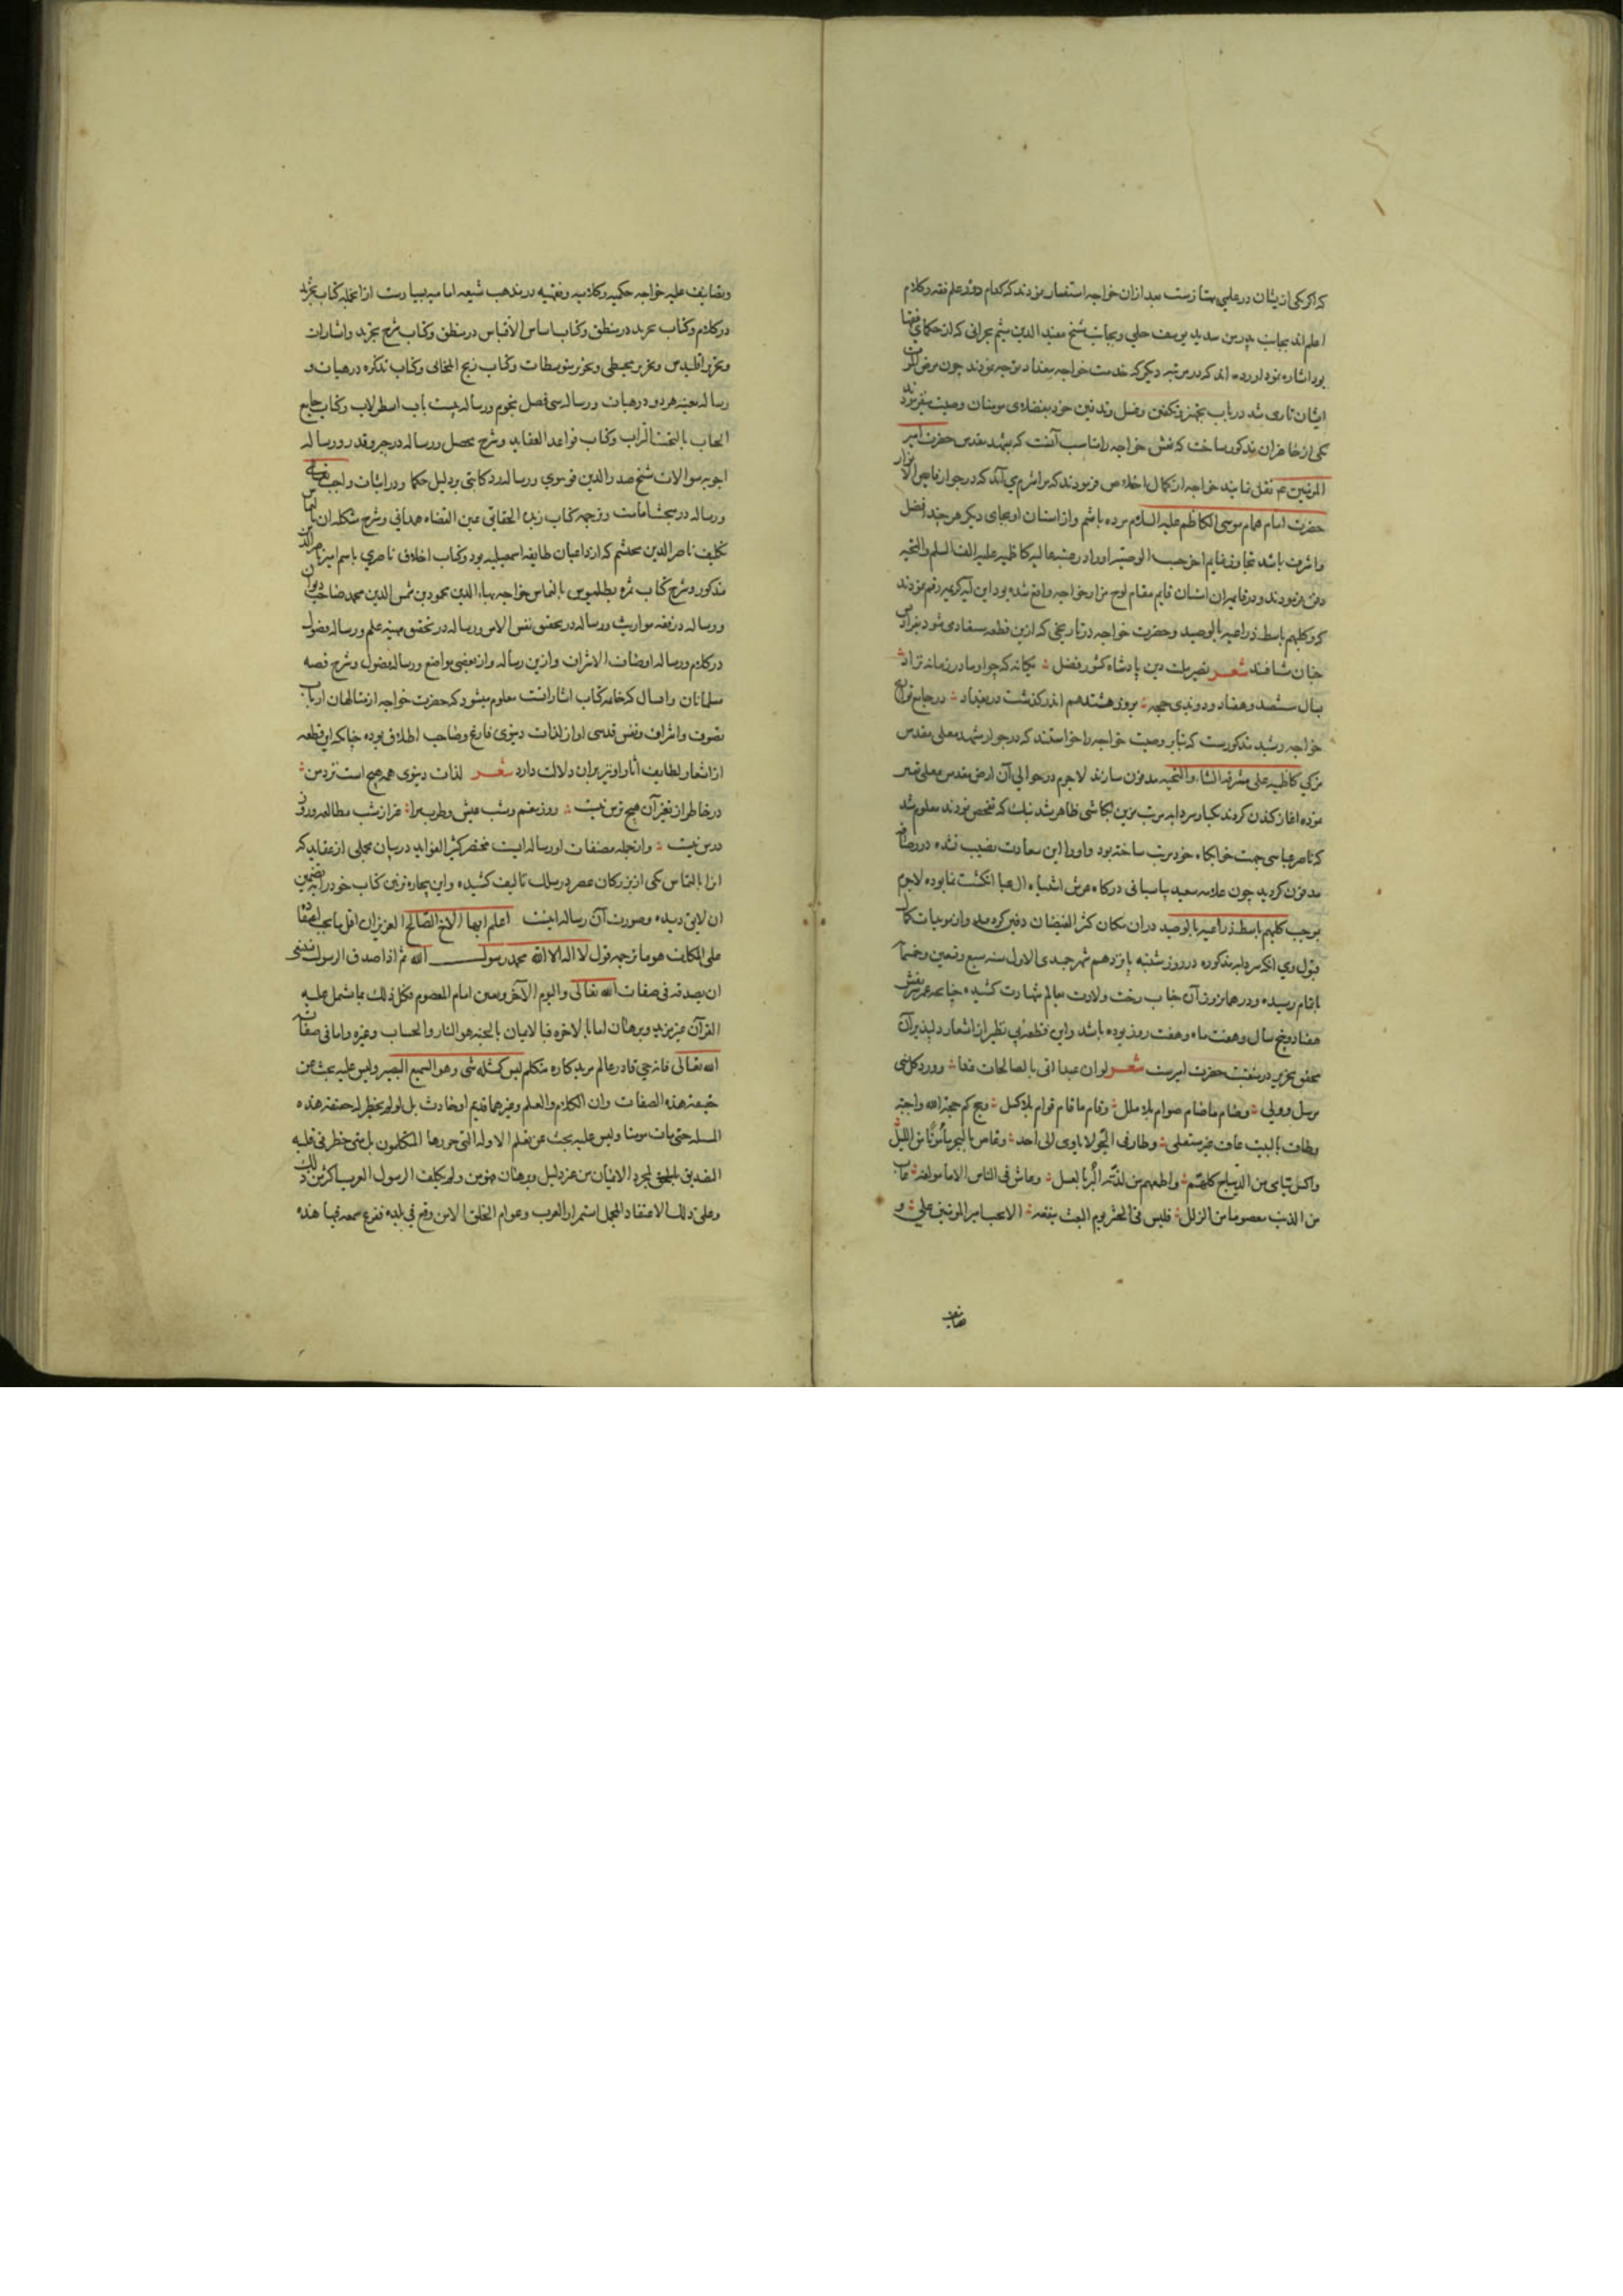 که اگر یکی از یشان در علمی ممتازست بعد ازان خواجه استفسار نمودند که کدام در دو علم فقه و کلام
اعلم اند بجانب پدر من سدید یوسف حلی و بجانب شیخ مفید الدین میثم بحرانی که از حکمای فقها
بود اشاره نمود آورده اند که در مرتبه دیگر که خدمت خواجه ببغداد توجه نمودند چون مرض الموت
ایشان طاری شد در باب تجهیز و تکفین و غسل و تدفین خود بفضلای مومنان وصیت میفرمودند
یکی از حاضران مذکور ساخت که نعش خواجه را مناسب آنست که بمشهد مقدس حضرت امیر
المومنین ع نقل نمایند خواجه از کمال اخلاص فرمودند که مرا شرم می آید که در جوار فایض الانوار
حضرت امام همام موسی الکاظم علیه السلام مرده باشم و از استان او بجای دیگر هر چند افضل
و اشرف باشد تجاوز نمایم اخر حسب الوصیه او را در روضه عالیه کاظمیه علیه الف السلم و التحیه
دفن فرمودند و در قایمه ایشان قایم مقام لوح مزار خواجه واقع شده بود این آیه کریمه رقم نمودند
که و کلبهم باسط ذراعیه بالوصید و حضرت خواجه در تاریخی که ازین قطعه مستفاد می شود
جنان شتافتند شعر نصیر ملت دین پادشاه کشور فضل یگانه که چو او مادر زمانه نزاد
بسال ششصد و هفتاد و دو بذی حجه بروز هشتدهم اندر گذشت در بغداد در جامع تواریخ
خواجه رشید مذکورست که بنابر وصیت خواجه خواستند که در جوار مشهد معلی مقدس
مزکی کاظمیه علی مشرفه الثناء و التحیه مدفون سازند لاجرم در حوالی آن ارض مقدس معلی
نموده اغاز کندن کردند یکبار سردابه مرتب مزین بکاشی ظاهر شد نیک که تفحص نمودند معلوم شد
که ناصر عباسی جهت خوابگاه خود مرتب ساخته بود و او را این سعادت نصیب نشده در رصافه
مدفون گردید چون علامه سعید پاسبانی درگاه عرش اشتباه ال عبا انگشت نما بوده لاجرم
بموجب کلبهم باسط ذراعیه بالوصید دران مکان کثیر الفیضان دفین گردید و از موبدات کمال
قبول وی انکه سردابه مذکوره در روز شنبه یازدهم شهر جمیدی الاول سنه سبع و تسعین و خمسمایه
باتمام رسیده و در همان روز آن جناب رخت ولادت بعالم شهادت کشیده چنانچه عمر شریفش
هفتاد و پنج سال و هفت ماه و هفت روز بوده باشد و این قطعه بی نظیر از اشعار دلپذیر آن
محقق نحریر در منقبت حضرت امیرست شعر لو ان عبدا اتی بالصالحات غدا و ود کل نبی
مرسل و ولی و صام ما صام صوام بلا ملل و قام ما قام قوام بلا کسل و حج کم حجة لله واجبة
و طاف بالبیت حاف غیر منتعل و طار فی الجو لا یاوی الی احد و غاص بالبحر مامونا من البلل
و اکسی یتامی من الدیباج کلهم و اطعمهم من لذیذ البر بالعسل و عاش فی الناس الافا مولفة عار
من الذنب معصوما من الزلل فلیس فی الحشر یوم البعث ینفعه الا بحب امیر المومنین علی و
تصانیف
و تصانیف علیه خواجه حکمیه و کلامیه و فقهیه در مذهب شیعه امامیه بسیارست از انجمله کتاب تجرید
در کلام و کتاب تجرید در منطق و کتاب اساس الاقتباس در منطق و کتاب شرح تجرید و اشارات
و تحریر اقلیدس و تحریر مجسطی و تحریر متوسطات و کتاب زیج ایلخانی و کتاب تذکره در هیات و
رساله معینه هر دو در هیات و رساله سی فصل نجوم و رساله بیست باب اسطرلاب و کتاب جامع
الحساب بالتخت و التراب و کتاب قواعد العقاید و شرح محصل و رساله در جبر و قدر و رساله
اجوبه سوالات شیخ صدر الدین قونوی و رساله رد کاتبی بر دلیل حکما در اثبات واجب تعالی
و رساله در مبحث امامت و ترجمه کتاب زبدة الحقایق عین القضاه همدانی و شرح مشکله ان بالتماس
تکلیف ناصر الدین محتشم که از داعیان طایفه اسمعیلیه بود و کتاب اخلاق ناصری باسم امیر ناصر الدین
مذکور و شرح کتاب ثمره بطلمیوس بالتماس خواجه بهاء الدین محمود بن شمس الدین محمد صاحب دیوان
و رساله در فقه مواریث و رساله در تحقیق نفس الامر و رساله در تحقیق مهیة علم و رساله فصول
در کلام و رساله اوصاف الاشراف و ازین رساله و از بعضی مواضع و رساله فصول و شرح قصه
سلامان و ابسال که خاتمه کتاب اشاراتست معلوم میشود که حضرت خواجه از متالهان ارباب
تصوف و اشراق و نفس قدسی او از لذات دنیوی فارغ و صاحب اطلاق بوده چنانکه این قطعه
از اشعار لطایف اثار او نیز بران دلالت دارد شعر لذات دنیوی همه هیچ است نزد من
در خاطر از تغیر آن هیچ ترس نیست روز تنعم و شب عیش و طرب مرا غیر از شب مطالعه و روز
درس نیست و از جمله مصنفات او رساله ایست مختصر کثیر الفواید در بیان مجملی از عقاید که
انرا بالتماس یکی از بزرگان عصر در سلک تالیف کشیده و این بیچاره تزیین کتاب خود را بتضمین
ان لایق دیده و صورت آن رساله اینست اعلم ایها الاخ الصالح العزیز ان اقل ما یجب اعتقاده
علی المکلف هو ما ترجمه قول لا اله الا الله محمد رسول الله ثم اذا صدق الرسول فینبغی
ان یصدقه فی صفات الله تعالی و الیوم الآخر و تعیین امام المعصوم و کل ذلک بما یشمل علیه
القرآن من غیر مزید و برهان اما بالاخره فبالایمان بالجنه و النار و الحساب و غیره و اما فی صفات
الله تعالی فانه حی قادر عالم مرید کاره متکلم لیس کمثله شی و هو السمیع البصیر و لیس علیه بحث عن
حقیقة هذه الصفات و ان الکلام و العلم و غیرهما قدیم او حادث بل لو لم یخطر له حقیقة هذه
المسله حتی مات مومنا و لیس علیه بحث عن تعلم الادله التی حررها المتکلمون بل متی خطر فی قلبه
التصدیق بالحق لمجرد الایمان من غیر دلیل و برهان فهو مومن و لم یکلف الرسول العرب باکثر من ذلک
و علی ذلک الاعتقاد المجمل استمرار العرب و عوام الخلق الا من وقع فی بلده فقرع سمعه فیها هذه